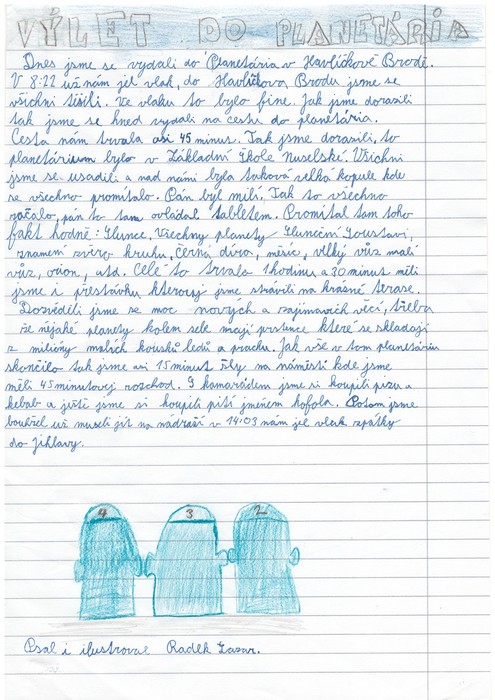 VÝLET DO PLANETÁRIA
Dnes jsme se vydali do Planetária v Havlíčkově Brodě.
V 8:22 už nám jel vlak, do Havlíčkova Brodu jsme se
všichni těšili. Ve vlaku to bylo fine. Jak jsme dorazili
tak jsme se hned vydali na cestu do planetária.
Cesta nám trvala asi 45 minut. Jak jsme dorazili, to
planetárium bylo v Základní škole Nuselské. Všichni
jsme se usadili a nad námi byla taková velká kopule kde
se všechno promítalo. Pán byl milí. Jak to všechno
začalo, pán to tam ovládal tabletem. Promítal tam toho
fakt hodně: Slunce, Všechny planety Sluneční Soustavi,
znamení zvěro kruhu, černá díra, měsíc, velký vůz malí
vůz, orion, atd. Celé to trvalo 1 hodinu a 30 minut měli
jsme i přestávku kterou jsme strávili na krásné terase.
Dozvěděli jsme se moc nových a zajímavích věcí, třeba
že nějaké planety kolem sebe mají prstence které se skládají
z miliony malích kousků ledů a prachu. Jak vše v tom planetáriu
skončilo tak jsme asi 15 minut šly na náměstí kde jsme
měli 45 minutovej rozchod. S kamarádem jsme si koupili pizu a
kebab a ještě jsme si koupili pití jménem kofola. Potom jsme
bouhžel už museli jít na nádraží v 14:03 nám jel vlak zpátky
do Jihlavy.
4 3 2
Psal i ilustroval Radek Lazar.